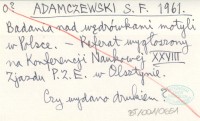 03 ADAMCZEWSKI S. F. 1961.
Badania nad wędrówkami motyli
w Polsce. — Referat wygłoszony
na Konferencji Naukowej XXVIII
Zjazdu P.Z.E. w Olsztynie.
Czy wydano drukiem?